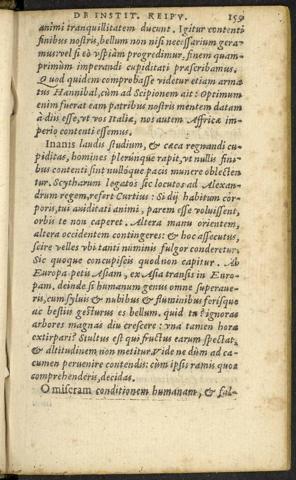 DE INSTIT. REIPV. 159
animi tranquillitatem ducunt. Igitur contenti
finibus nostris, bellum non nisi necessarium gera-
mus: vel si eò vspiàm progredimur, finem quam-
primùm imperandi cupiditati præscribamus.
Quod quidem comprobasse videtur etiam arma-
tus Hannibal, cùm ad Scipionem ait: Optimum
enim fuerat eam patribus nostris mentem datam
à diis esse, vt vos Italiæ, nos autem Affricæ im-
perio contenti essemus.
Inanis laudis studium, & cæca regnandi cu-
piditas, homines plerunque rapit, vt nullis fini-
bus contenti sint nullóque pacis munere oblecten
tur. Scytharum legatos sic locutos ad Alexan-
drum regem, refert Curtius: Si dij habitum cor-
poris, tui auiditati animi, parem esse voluissent,
orbis te non caperet. Altera manu orientem,
altera occidentem contingeres: & hoc assecutus,
scire velles vbi tanti numinis fulgor conderetur.
Sic quoque concupiscis quod non capitur. Ab
Europa petis Asiam, ex Asia transis in Euro-
pam, deinde si humanum genus omne superaue-
ris, cum syluis & nubibus & fluminibus ferisque
ac bestiis gesturus es bellum. quid tu? ignoras
arbores magnas diu crescere: vna tamen hora
extirpari? Stultus est qui fructus earum spectat,
& altitudinem non metitur. Vide ne dùm ad ca-
cumen peruenire contendis: cùm ipsis ramis quos
comprehenderis, decidas.
O miseram conditionem humanam, & ful-